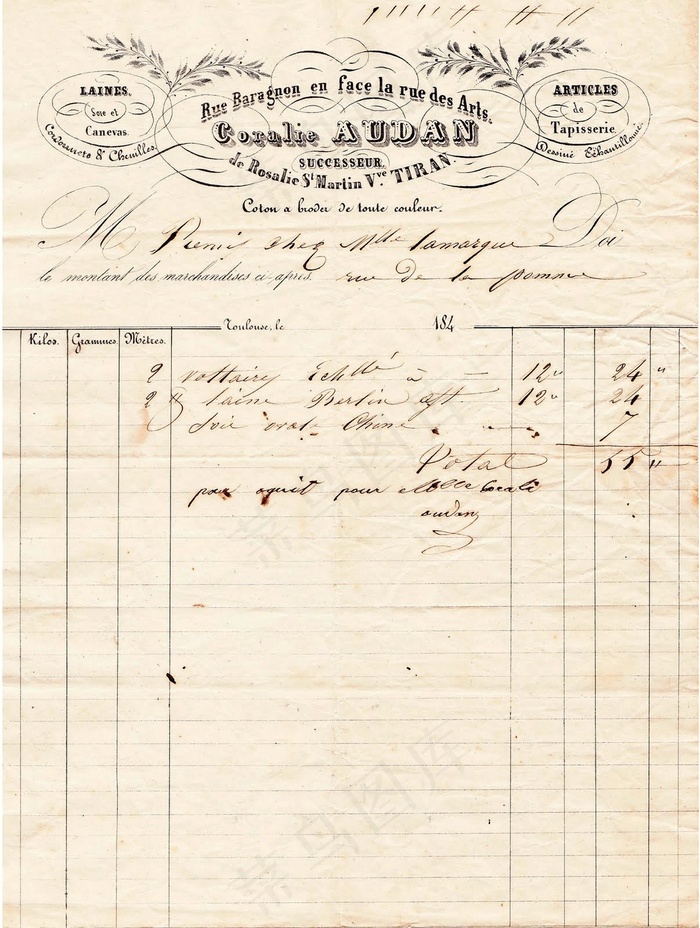 LAINES.
Soie et
Canevas.
Cordonnets & Chenilles.
Rue Baragnon en face la rue des Arts.
Coralie AUDAN
SUCCESSEUR,
de Rosalie St Martin Vve TIRAN.
ARTICLES
de
Tapisserie.
Dessiné Échantillonné.
Coton a broder de toute couleur.
M Remis chez Mlle lamarque Doi
le montant des marchandises ci-après. rue de la pomme
Toulouse, le 184
Kilos. Grammes. Mètres.
2 voltaires Echllé à 12 24
2 laine Berlin 12 24
Soie Chine 7
Total 55
pour aquit pour Melle Corali
audan
菜鸟图库
菜鸟图库